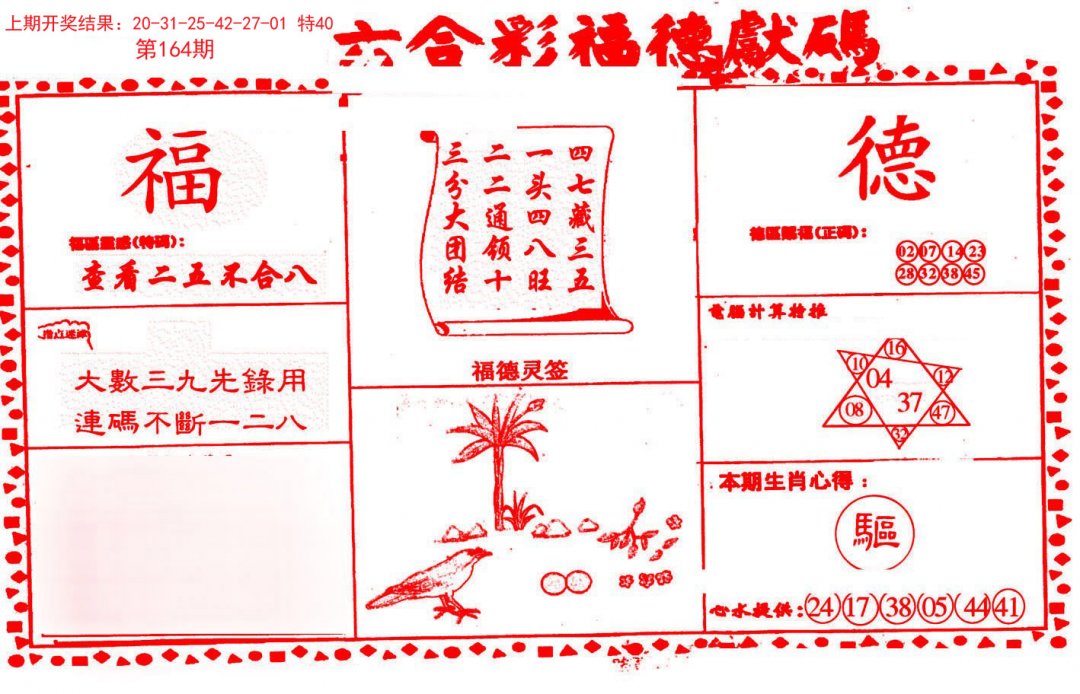 上期开奖结果：20-31-25-42-27-01 特40
第164期
六合彩福德獻碼
福
福區靈感(特碼)：
查看二五不合八
大數三九先錄用
連碼不斷一二八
四七藏三五
一头四八旺
二二通领十
三分大团结
福德灵签
德
德區賜福(正碼)：
02 07 14 23
28 32 38 45
電腦計算特推
16
10 04 12
08 37 47
32
本期生肖心得：
驅
心水提供：24 17 38 05 44 41